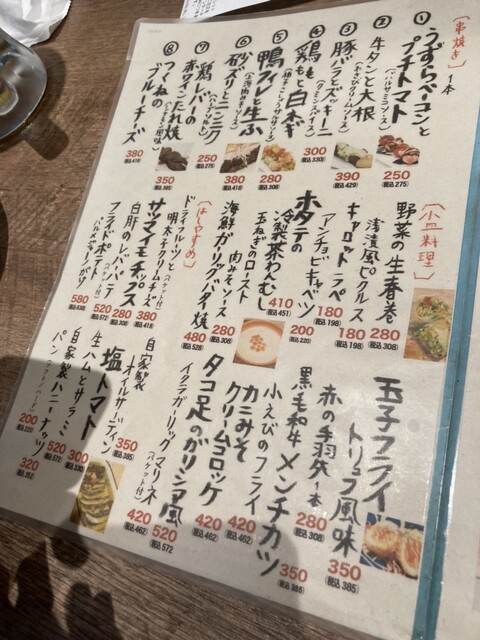 〔串焼き〕 1本
① うずらベーコンと
プチトマト
(バルサミコソース)
250
(税込275)
② 牛タンと大根
(わさびクリームソース)
390
(税込429)
③ 豚バラとズッキーニ
300
(税込330)
④ 鶏もも白ネギ
(クミンスパイス)
280
(税込308)
⑤ 鴨フィレと生ふ
380
(税込418)
⑥ 砂ズリとニンニク
250
(税込275)
⑦ 鶏レバーの
赤ワインたれ焼
350
(税込385)
⑧ つくねの
ブルーチーズ
380
(税込418)
〔小皿料理〕
野菜の生春巻
280
(税込308)
浅漬風ピクルス
180
(税込198)
キャロットラペ
180
(税込198)
アンチョビキャベツ
200
(税込220)
ホタテの
冷製茶わんむし
410
(税込451)
玉ねぎのロースト
肉みそソース
280
(税込308)
海鮮ガーリックバター焼
480
(税込528)
〔はしやすめ〕
ドライフルーツと
明太子クリームチーズ
(バケット付)
380
(税込418)
サツマイモチップス
280
(税込308)
白肝のレバーパテ
(バケット付)
520
(税込572)
フライドポテト
580
(税込638)
玉子フライ
トリュフ風味
350
(税込385)
赤の手羽先 1本
280
(税込308)
黒毛和牛メンチカツ
350
(税込385)
小えびのフライ
420
(税込462)
カニみそ
クリームコロッケ
420
(税込462)
タコ足のガリシア風
520
(税込572)
イクラガーリックマリネ
(バケット付)
420
(税込462)
自家製
オイルサーディン
350
(税込385)
塩トマト
300
(税込330)
生ハムとサラミ
520
(税込572)
自家製
パン
200
(税込220)
ハニーナッツ
320
(税込352)